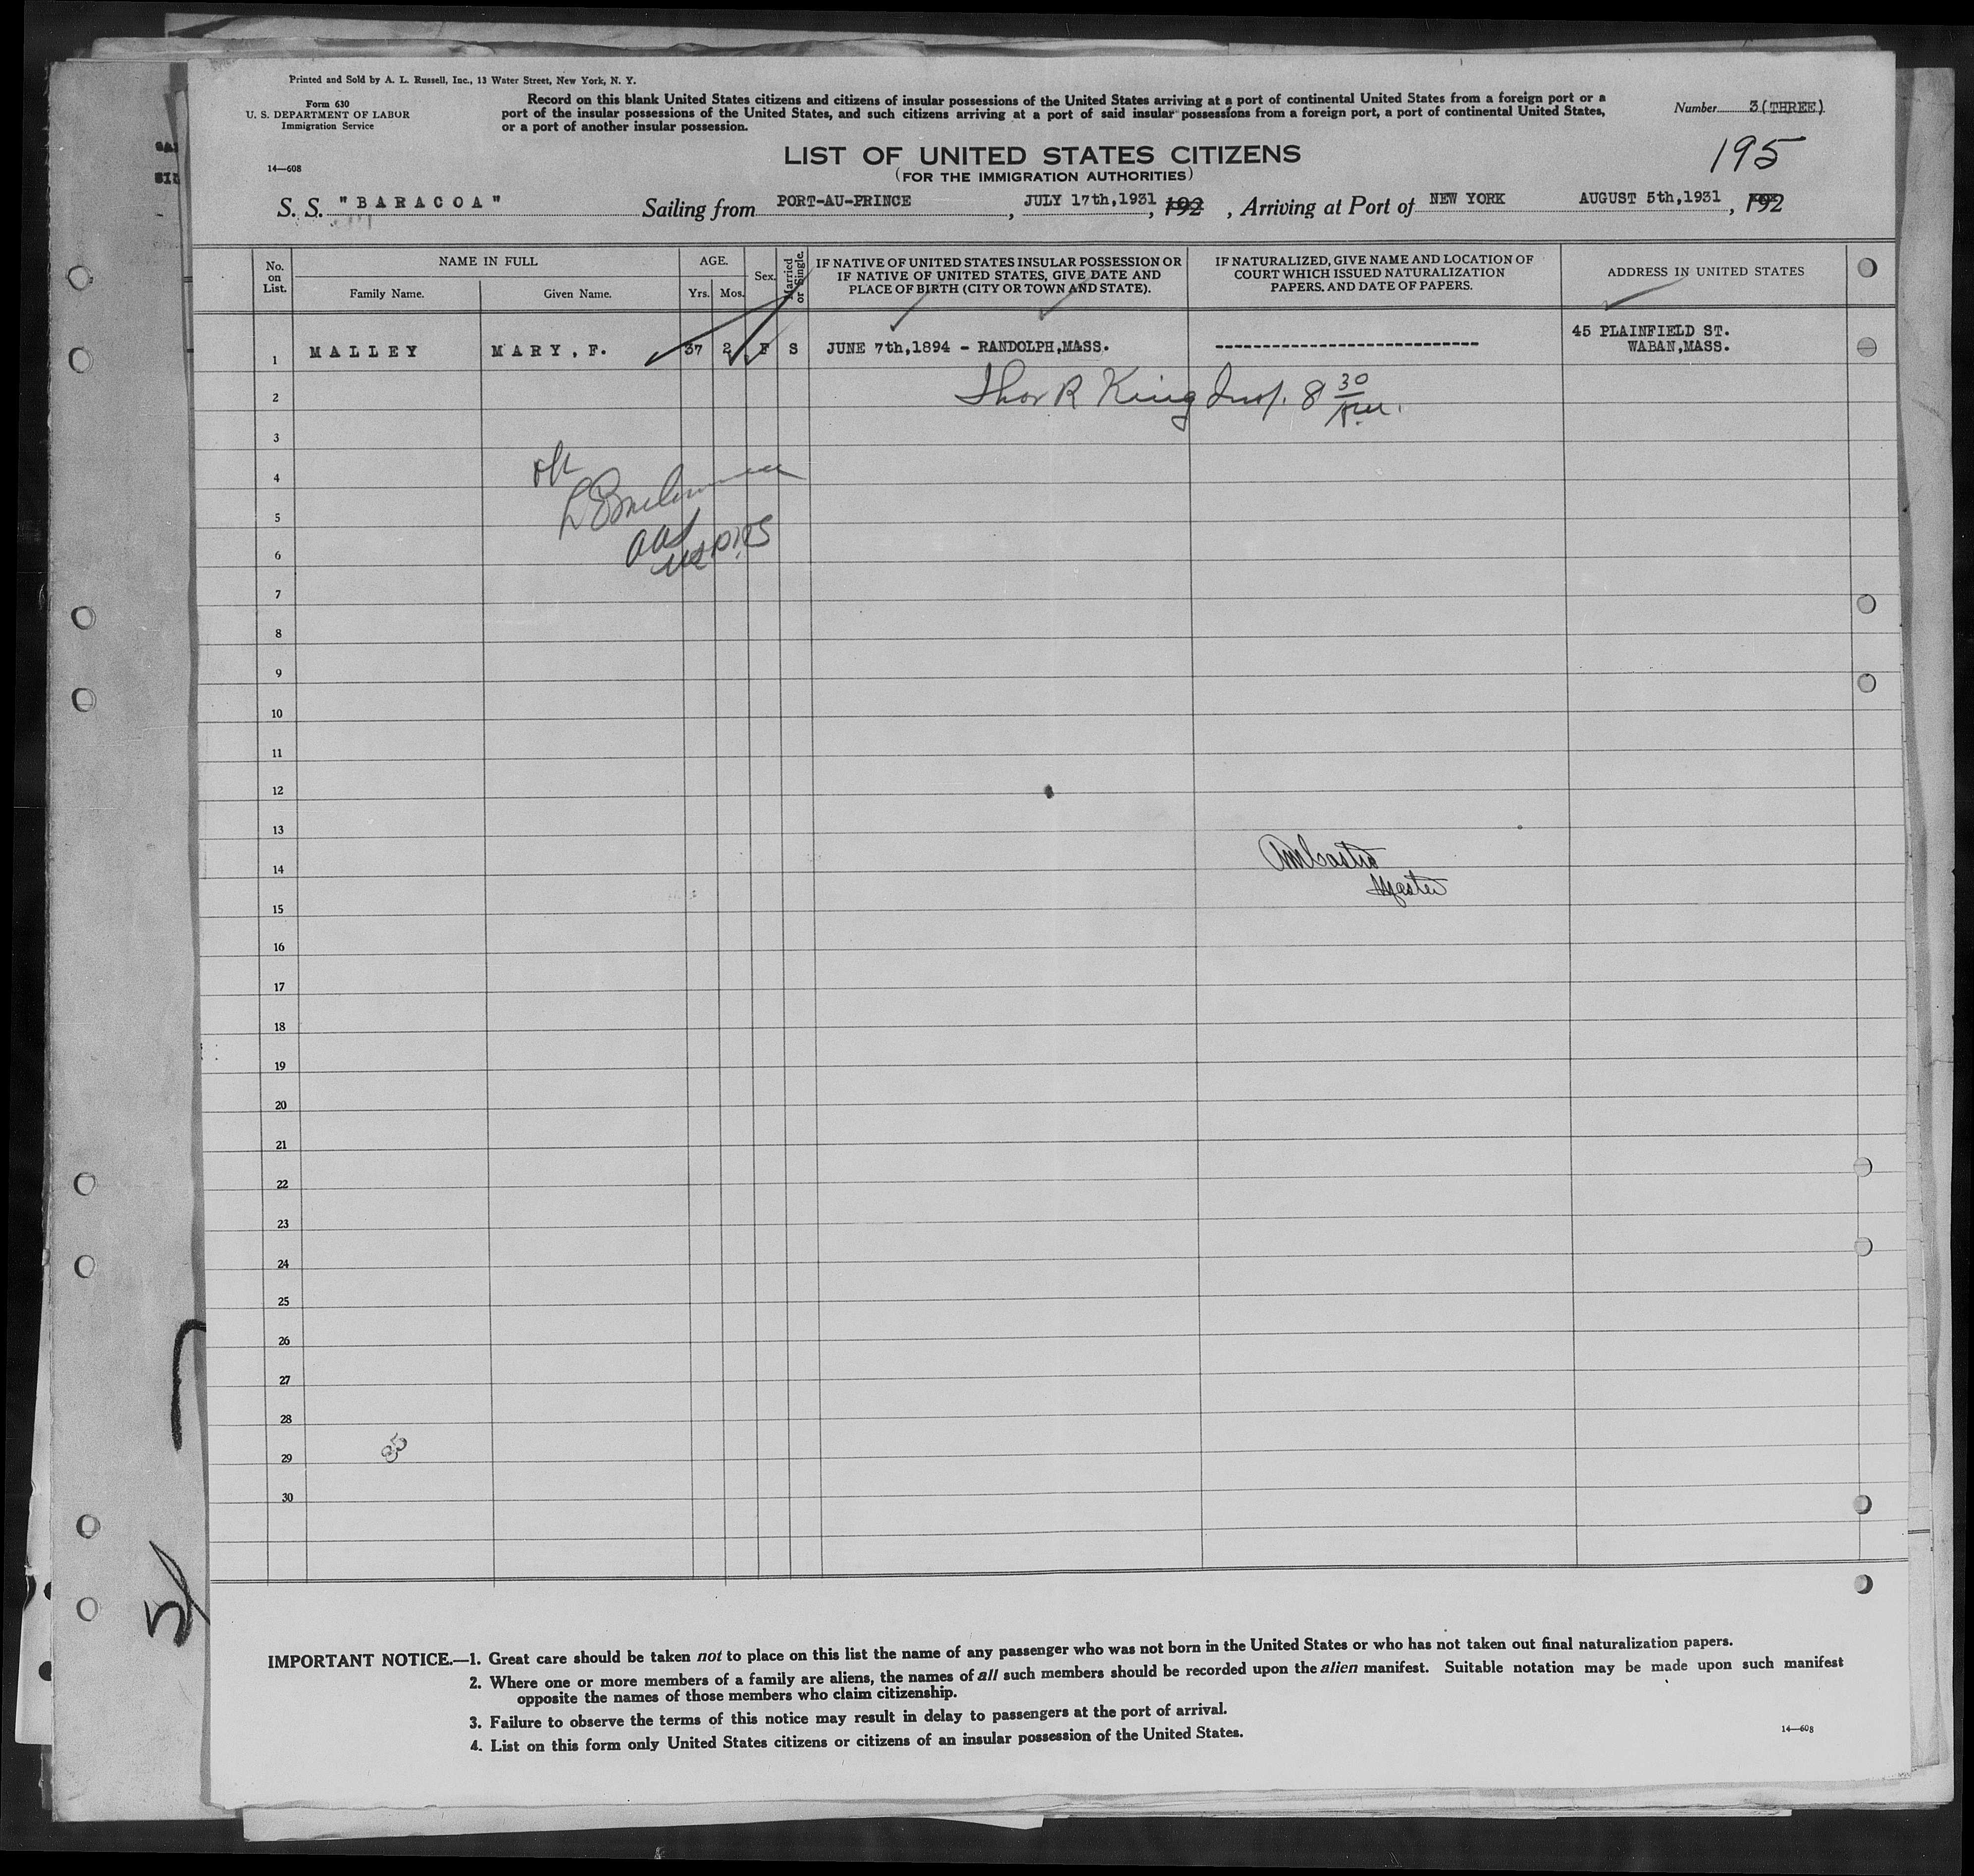 Printed and Sold by A. L. Russell, Inc., 13 Water Street, New York, N. Y.
Form 630
U. S. DEPARTMENT OF LABOR
Immigration Service
14—608
Record on this blank United States citizens and citizens of insular possessions of the United States arriving at a port of continental United States from a foreign port or a
port of the insular possessions of the United States, and such citizens arriving at a port of said insular possessions from a foreign port, a port of continental United States,
or a port of another insular possession.
Number 3(THREE)
195
LIST OF UNITED STATES CITIZENS
(FOR THE IMMIGRATION AUTHORITIES)
S. S. "BARACOA" Sailing from PORT-AU-PRINCE, JULY 17th,1931, 192, Arriving at Port of NEW YORK AUGUST 5th,1931, 192
No. on List.
NAME IN FULL
Family Name.
Given Name.
AGE.
Yrs.
Mos.
Sex.
Married or Single.
IF NATIVE OF UNITED STATES INSULAR POSSESSION OR
IF NATIVE OF UNITED STATES, GIVE DATE AND
PLACE OF BIRTH (CITY OR TOWN AND STATE).
IF NATURALIZED, GIVE NAME AND LOCATION OF
COURT WHICH ISSUED NATURALIZATION
PAPERS, AND DATE OF PAPERS.
ADDRESS IN UNITED STATES
1 MALLEY MARY, F. 37 2 F S JUNE 7th,1894 - RANDOLPH,MASS. --------------------------- 45 PLAINFIELD ST.
WABAN,MASS.
2 Thos R King Insp. 8 30 AM.
3
4 ok
5
6
7
8
9
10
11
12
13
14 Master
15
16
17
18
19
20
21
22
23
24
25
26
27
28
29
30
51
IMPORTANT NOTICE.—1. Great care should be taken not to place on this list the name of any passenger who was not born in the United States or who has not taken out final naturalization papers.
2. Where one or more members of a family are aliens, the names of all such members should be recorded upon the alien manifest. Suitable notation may be made upon such manifest
opposite the names of those members who claim citizenship.
3. Failure to observe the terms of this notice may result in delay to passengers at the port of arrival.
4. List on this form only United States citizens or citizens of an insular possession of the United States.
14—608